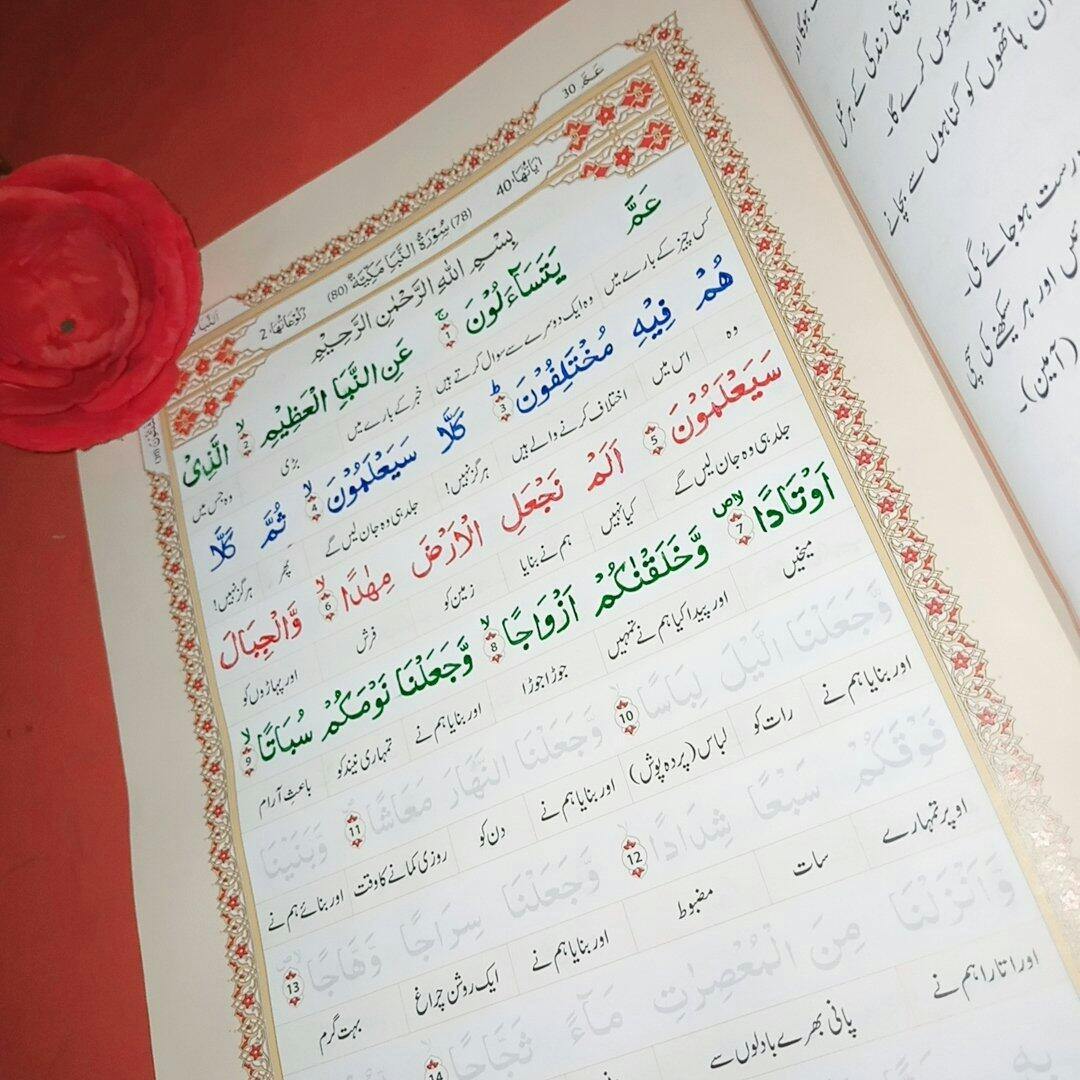 عَمَّ 30
اٰیَاتُهَا 40
(78) سُوْرَةُ النَّبَاِ مَكِّیَّةٌ (80)
رُكُوْعَاتُهَا 2
بِسْمِ اللهِ الرَّحْمٰنِ الرَّحِیْمِ
عَمَّ یَتَسَآءَلُوْنَ ۚ 1 عَنِ النَّبَاِ الْعَظِیْمِ ۙ 2 الَّذِیْ
کس چیز کے بارے میں وہ ایک دوسرے سے سوال کرتے ہیں خبر کے بارے میں بڑی وہ جس میں
هُمْ فِیْهِ مُخْتَلِفُوْنَ ؕ 3 كَلَّا سَیَعْلَمُوْنَ ۙ 4 ثُمَّ كَلَّا
وہ اس میں اختلاف کرنے والے ہیں ہرگز نہیں! جلد ہی وہ جان لیں گے پھر ہرگز نہیں!
سَیَعْلَمُوْنَ 5 اَلَمْ نَجْعَلِ الْاَرْضَ مِهٰدًا ۙ 6 وَّالْجِبَالَ
جلد ہی وہ جان لیں گے کیا نہیں ہم نے بنایا زمین کو فرش اور پہاڑوں کو
اَوْتَادًا ۪ۙ 7 وَّخَلَقْنٰكُمْ اَزْوَاجًا ۙ 8 وَّجَعَلْنَا نَوْمَكُمْ سُبَاتًا ۙ 9
میخیں اور پیدا کیا ہم نے تمہیں جوڑا جوڑا اور بنایا ہم نے تمہاری نیند کو باعثِ آرام
وَّجَعَلْنَا الَّیْلَ لِبَاسًا ۙ 10 وَّجَعَلْنَا النَّهَارَ مَعَاشًا 11 وَّبَنَیْنَا
اور بنایا ہم نے رات کو لباس (پردہ پوش) اور بنایا ہم نے دن کو روزی کمانے کا وقت اور بنائے ہم نے
فَوْقَكُمْ سَبْعًا شِدَادًا ۙ 12 وَّجَعَلْنَا سِرَاجًا وَّهَّاجًا 13
اوپر تمہارے سات مضبوط اور بنایا ہم نے ایک روشن چراغ بہت گرم
وَّاَنْزَلْنَا مِنَ الْمُعْصِرٰتِ مَآءً ثَجَّاجًا 14
اور اتارا ہم نے پانی بھرے بادلوں سے
اپنی زندگی کے ہر عمل
محسوس کرے گا۔
ہاتھوں کو گناہوں سے بچانے
درست ہو جائے گی۔
اور ہر سیکھنے کی سچی
(آمین)۔